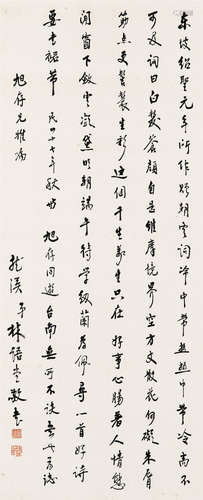 東坡紹聖元年所作贈朝雲詞冷中帶熱熱中帶冷高不
可及詞曰白髮蒼顏自是維摩境界空方丈散花何礙朱唇
筯點更髻鬟生彩這個千生萬生只在好事心腸著人情態
閒窗下斂雲凝黛明朝端午待學紉蘭為佩尋一首好詩
要書裙帶 民四十七年秋與 旭存同遊台南無所不談書此為誌
旭存兄雅屬
龍溪弟林語堂敬書